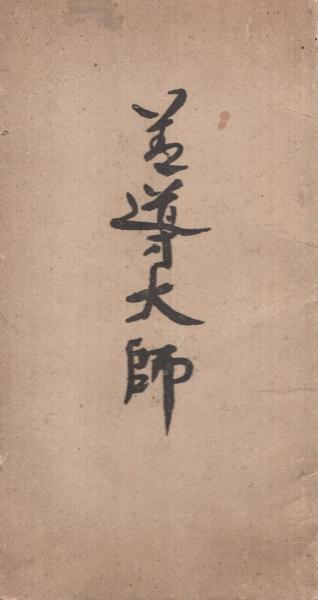 善導大師